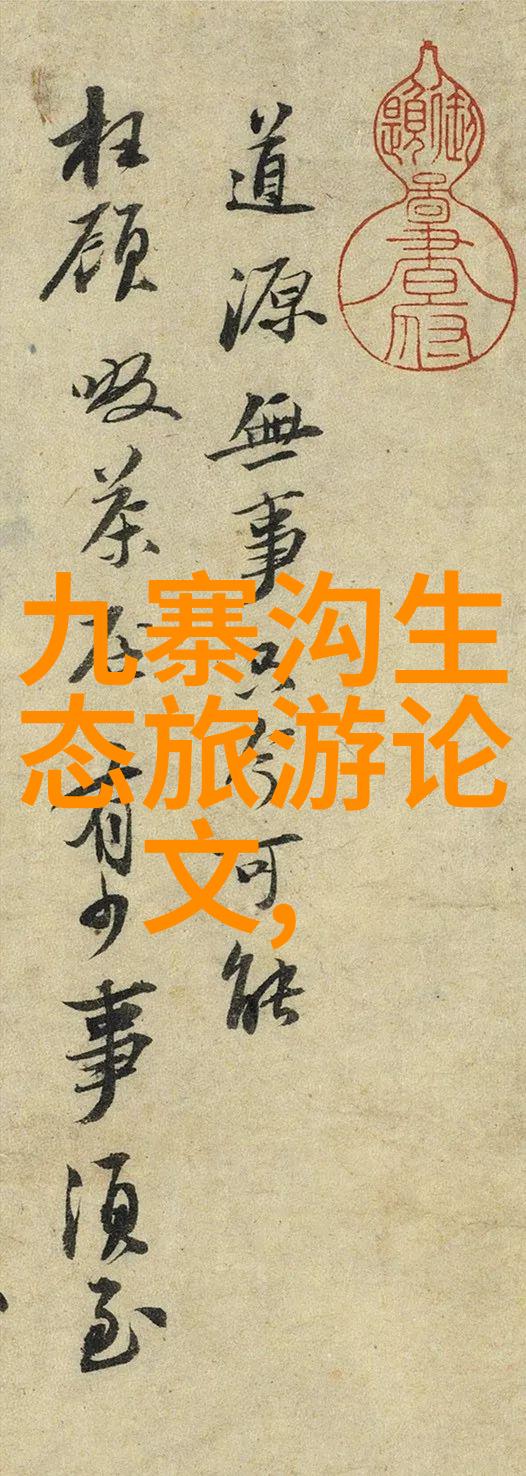 道源無事只今可能
枉顧啜茶否有少事須至
九寨沟生
态旅游论
文,